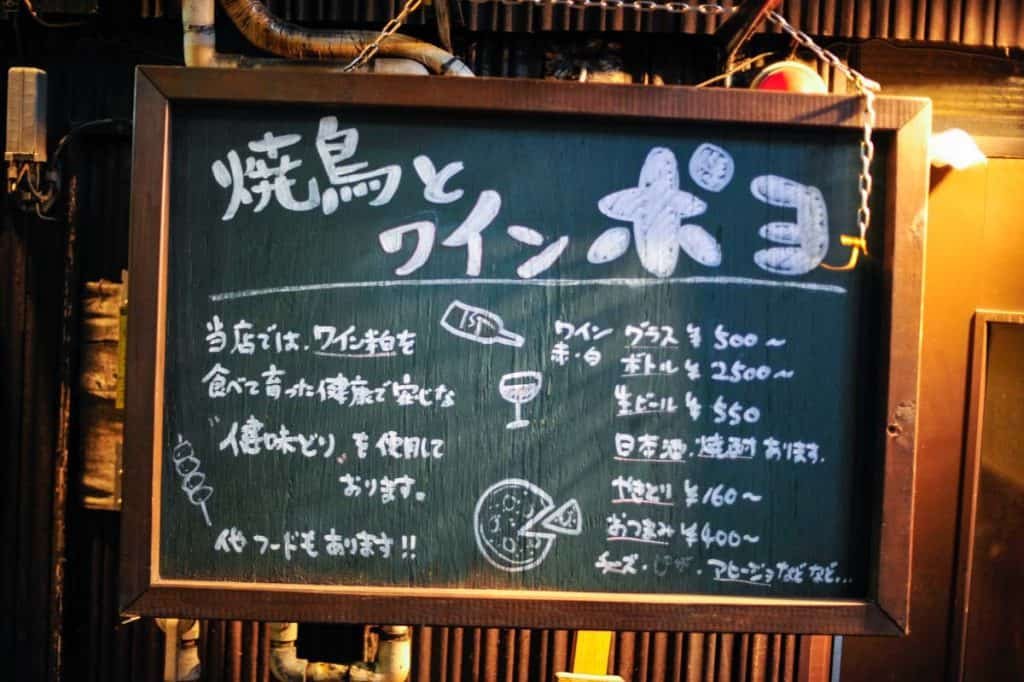 焼鳥と
ワイン ポヨ
当店では、ワイン粕を
食べて育った健康で安心な
"健味どり"を使用して
おります。
他フードもあります!!
ワイン 赤・白
グラス ¥500〜
ボトル ¥2500〜
生ビール ¥550
日本酒・焼酎あります。
やきとり ¥160〜
おつまみ ¥400〜
チーズ・ピザ・アヒージョなどなど...